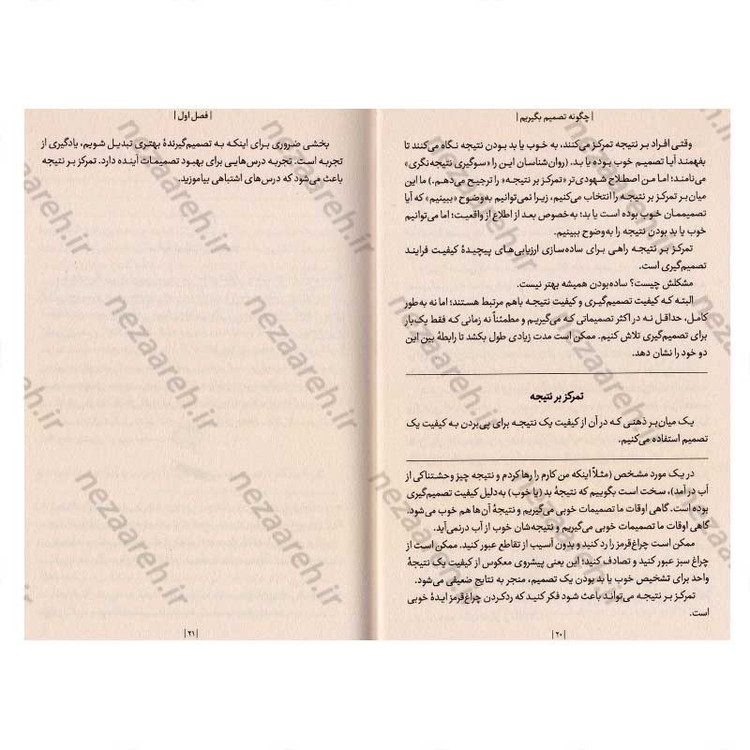 | چگونه تصمیم بگیریم |
وقتی افراد بر نتیجه تمرکز می‌کنند، به خوب یا بد بودن نتیجه نگاه می‌کنند تا
بفهمند آیا تصمیم خوب بوده یا بد. (روان‌شناسان این را «سوگیری نتیجه‌نگری»
می‌نامند؛ اما من اصطلاح شهودی‌تر «تمرکز بر نتیجه» را ترجیح می‌دهم.) ما این
میان‌بر تمرکز بر نتیجه را انتخاب می‌کنیم، زیرا نمی‌توانیم به‌وضوح «ببینیم» که آیا
تصمیممان خوب بوده است یا بد؛ به‌خصوص بعد از اطلاع از واقعیت؛ اما می‌توانیم
خوب یا بد بودن نتیجه را به‌وضوح ببینیم.
تمرکز بر نتیجه راهی برای ساده‌سازی ارزیابی‌های پیچیدهٔ کیفیت فرایند
تصمیم‌گیری است.
مشکلش چیست؟ ساده‌بودن همیشه بهتر نیست.
البته که کیفیت تصمیم‌گیری و کیفیت نتیجه باهم مرتبط هستند؛ اما نه به‌طور
کامل، حداقل نه در اکثر تصمیماتی که می‌گیریم و مطمئناً نه زمانی که فقط یک‌بار
برای تصمیم‌گیری تلاش کنیم. ممکن است مدت زیادی طول بکشد تا رابطهٔ بین این
دو خود را نشان دهد.
تمرکز بر نتیجه
یک میان‌بر ذهنی که در آن از کیفیت یک نتیجه برای پی‌بردن به کیفیت یک
تصمیم استفاده می‌کنیم.
در یک مورد مشخص (مثلاً اینکه من کارم را رها کردم و نتیجه چیز وحشتناکی از
آب در آمد)، سخت است بگوییم که نتیجهٔ بد (یا خوب) به‌دلیل کیفیت تصمیم‌گیری
بوده است. گاهی اوقات ما تصمیمات خوبی می‌گیریم و نتیجهٔ آن‌ها هم خوب می‌شود.
گاهی اوقات ما تصمیمات خوبی می‌گیریم و نتیجه‌شان خوب از آب درنمی‌آید.
ممکن است چراغ‌قرمز را رد کنید و بدون آسیب از تقاطع عبور کنید. ممکن است از
چراغ سبز عبور کنید و تصادف کنید؛ این یعنی پیشروی معکوس از کیفیت یک نتیجهٔ
واحد برای تشخیص خوب یا بد بودن یک تصمیم، منجر به نتایج ضعیفی می‌شود.
تمرکز بر نتیجه می‌تواند باعث شود فکر کنید که ردکردن چراغ‌قرمز ایدهٔ خوبی
است.
| ۲۰ |
| فصل اول |
بخشی ضروری برای اینکه به تصمیم‌گیرندهٔ بهتری تبدیل شویم، یادگیری از
تجربه است. تجربه درس‌هایی برای بهبود تصمیمات آینده دارد. تمرکز بر نتیجه
باعث می‌شود که درس‌های اشتباهی بیاموزید.
| ۲۱ |
nezaareh.ir